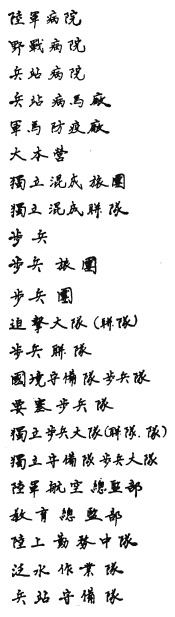 陸軍病院
野戰病院
兵站病院
兵站病馬廠
軍馬防疫廠
大本營
獨立混成旅團
獨立混成聯隊
步兵
步兵旅團
步兵團
追擊大隊(聯隊)
步兵聯隊
國境守備隊步兵隊
要塞步兵隊
獨立步兵大隊(聯隊.隊)
獨立守備隊步兵大隊
陸軍航空總監部
教育總監部
陸上勤務中隊
泛水作業隊
兵站守備隊